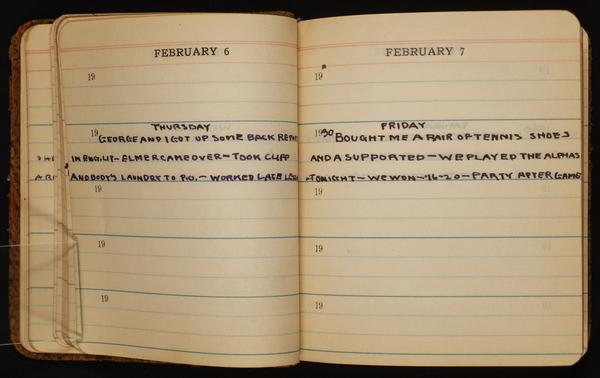 FEBRUARY 6
19
THURSDAY
19 GEORGE AND I GOT UP SOME BACK
IN ENG. LIT - ELMER CAME OVER - TOOK CLIFF
AND BODY'S LAUNDRY TO P.O. - WORKED LATE
19
19
FEBRUARY 7
19
FRIDAY
1930 BOUGHT ME A PAIR OF TENNIS SHOES
AND A SUPPORTED - WE PLAYED THE ALPHAS
TONIGHT - WE WON - 16-20 - PARTY AFTER GAME
19
19
19